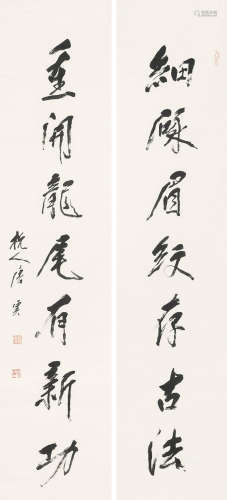 細廝眉紋存古法
重開龍尾有新功
杭人唐雲